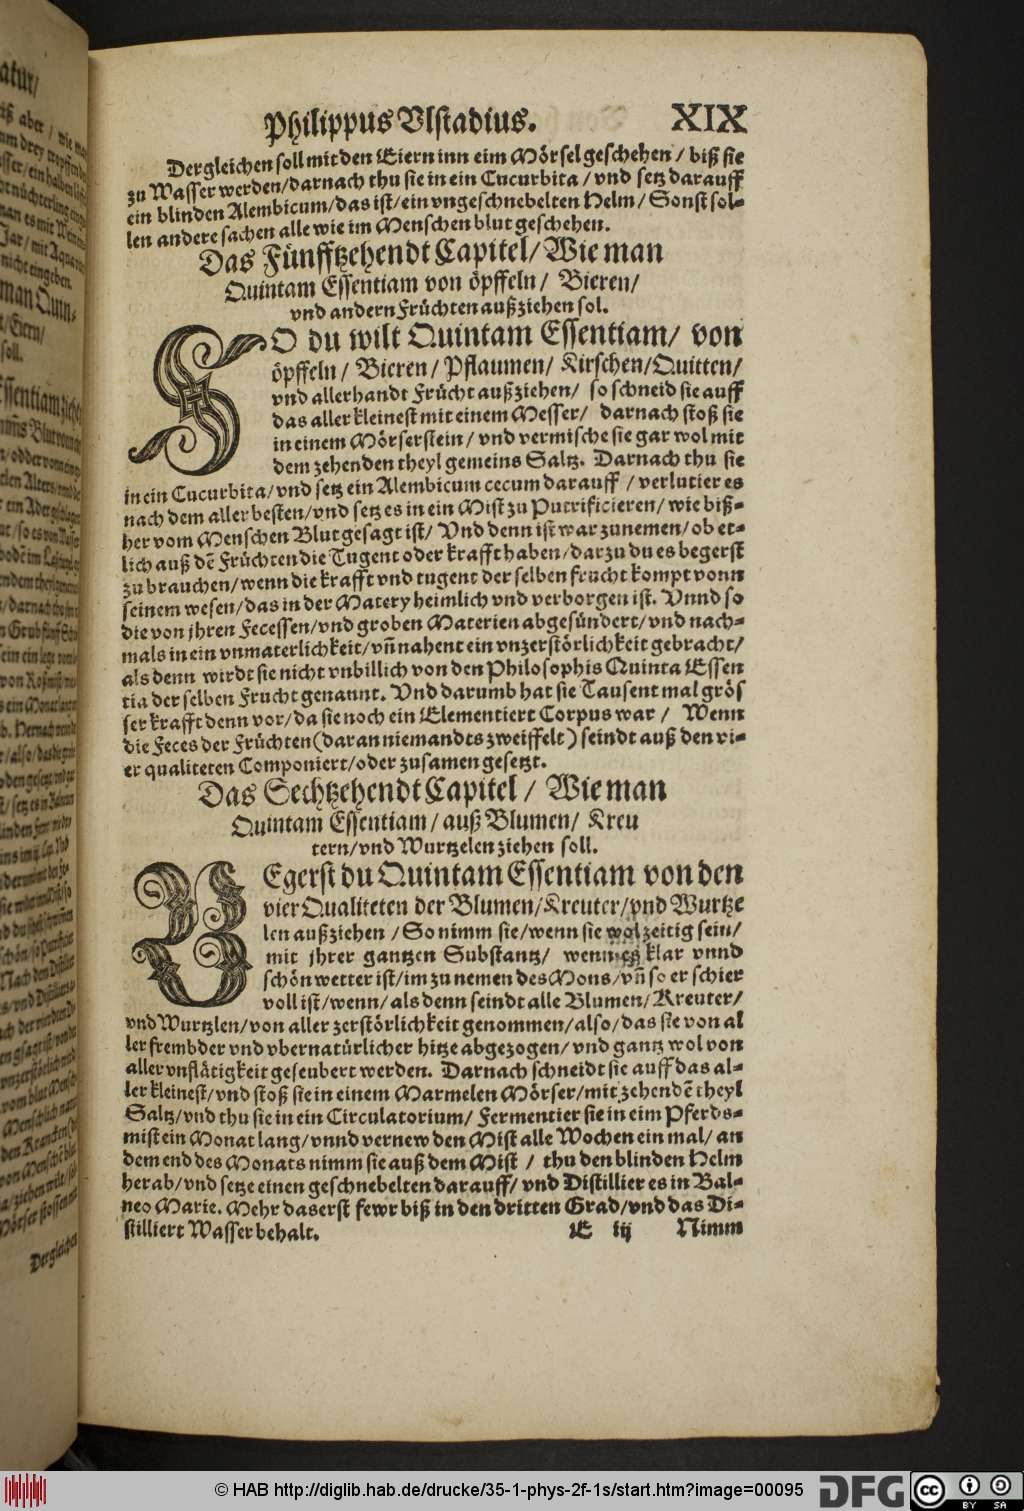 Philippus Vlstadius. XIX
Dergleichen soll mit den Eiern inn eim Mörsel geschehen / biß sie
zu Wasser werden/darnach thu sie in ein Cucurbita / vnd setz darauff
ein blinden Alembicum/das ist/ein vngeschnebelten Helm/ Sonst sol-
len andere sachen alle wie im Menschen blut geschehen.
Das Fünfftzehendt Capitel/ Wie man
Quintam Essentiam von öpffeln/ Bieren/
vnd andern Früchten außziehen sol.
SO du wilt Quintam Essentiam/ von
öpffeln/ Bieren/ Pflaumen/ Kirschen/Quitten/
vnd allerhandt Frücht außziehen/ so schneid sie auff
das aller kleinest mit einem Messer/ darnach stoß sie
in einem Mörserstein/ vnd vermische sie gar wol mit
dem zehenden theyl gemeins Saltz. Darnach thu sie
in ein Cucurbita/vnd setz ein Alembicum cecum darauff / verlutier es
nach dem aller besten/vnd setz es in ein Mist zu Putrificieren/ wie biß-
her vom Menschen Blut gesagt ist/ Vnd denn ist war zunemen/ ob et-
lich auß dẽ Früchten die Tugent oder krafft haben/darzu du es begerst
zu brauchen/wenn die krafft vnd tugent der selben frucht kompt vonn
seinem wesen/das in der Matery heimlich vnd verborgen ist. Vnnd so
die von jhren Fecessen/vnd groben Materien abgesündert/vnd nach-
mals in ein vnmaterlichkeit/vñ nahent ein vnzerstörlichkeit gebracht/
als denn wirdt sie nicht vnbillich von den Philosophis Quinta Essen
tia der selben Frucht genannt. Vnd darumb hat sie Tausent mal grös
ser krafft denn vor/da sie noch ein Elementiert Corpus war / Wenn
die Feces der Früchten (daran niemandts zweiffelt) seindt auß den vi-
er qualiteten Componiert/oder zusamen gesetzt.
Das Sechtzehendt Capitel / Wie man
Quintam Essentiam / auß Blumen/ Kreu
tern/vnd Wurtzelen ziehen soll.
BEgerst du Quintam Essentiam von den
vier Qualiteten der Blumen/Kreuter/vnd Wurtze
len außziehen / So nimm sie/wenn sie wol zeitig sein/
mit jhrer gantzen Substantz/ wenn es klar vnnd
schön wetter ist/im zu nemen des Mons/vñ so er schier
voll ist/wenn/ als denn seindt alle Blumen/ Kreuter/
vnd Wurtzlen/von aller zerstörlichkeit genommen/also/das sie von al
ler frembder vnd vbernatürlicher hitze abgezogen/ vnd gantz wol von
aller vnflätigkeit geseubert werden. Darnach schneidt sie auff das al-
ler kleinest/vnd stoß sie in einem Marmelen Mörser/mit zehendẽ theyl
Saltz/vnd thu sie in ein Circulatorium/ Fermentier sie in eim Pferds-
mist ein Monat lang/ vnnd vernew den Mist alle Wochen ein mal/ an
dem end des Monats nimm sie auß dem Mist / thu den blinden Helm
herab/vnd setze einen geschnebelten darauff/ vnd Distillier es in Bal-
neo Marie. Mehr das erst fewr biß in den dritten Grad/vnd das Di-
stilliert Wasser behalt.
E iij Nimm
© HAB http://diglib.hab.de/drucke/35-1-phys-2f-1s/start.htm?image=00095
DFG
cc BY SA